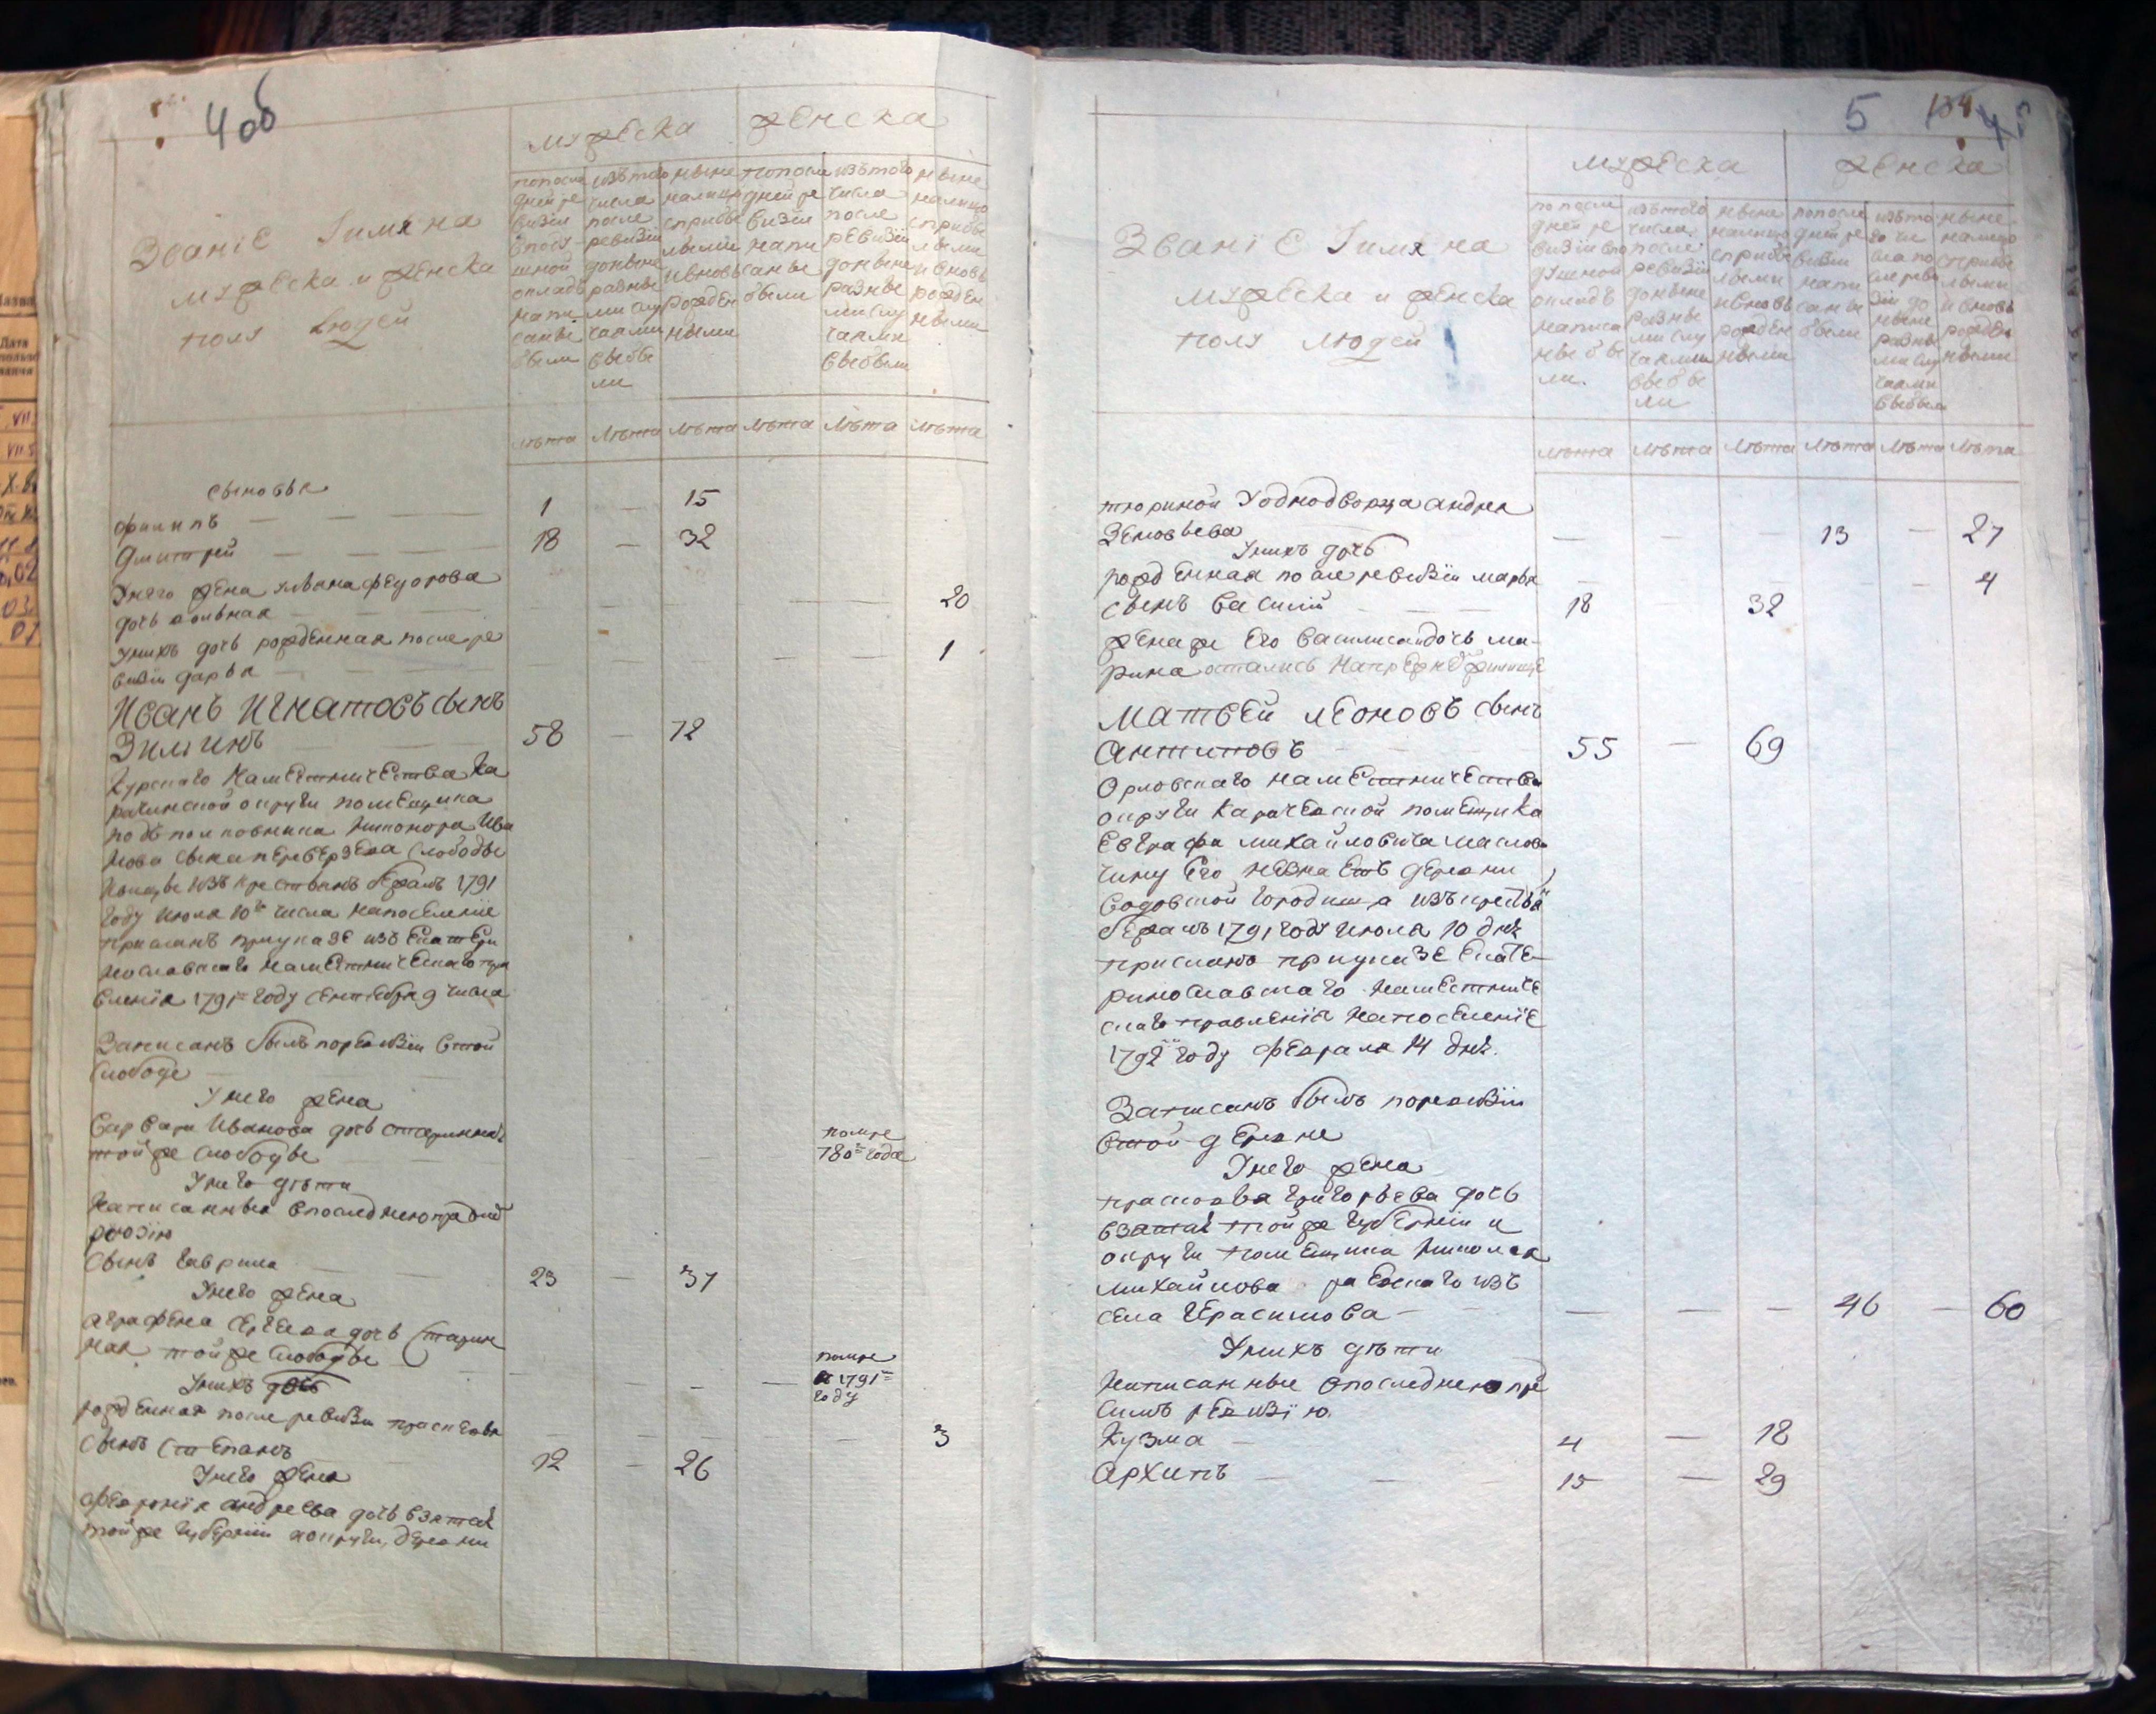 4об
Званїе Iимяна
мужеска и женска
полу людей
мужеска
женска
по после
дней ре
визїи
в поду
шной
окладъ
напи
саные
были
изъ того
числа
после
ревизїи
до ныне
разные
ми слу
чаями
выбы
ли
ныне
на лицо
с прибы
лыми
и вновь
рожден
ными
по после
дней ре
визїи
напи
саные
были
изъ того
числа
после
ревизїи
до ныне
разные
ми слу
чаями
выбыли
ныне
на лицо
с прибы
лыми
и вновь
рожден
ными
лѣта лѣта лѣта лѣта лѣта лѣта
сыновья
Филипъ — — — 1 — 15
Дмитрей — — — 18 — 32
У него жена Ульяна Федорова
дочь — — — 20
У нихъ дочь рожденная после ре
визїи Дарья — — — 1
Иванъ Игнатовъ сынъ
Зилинъ — 58 — 72
Курскаго наместничества
округи помещика
подъполковника Никонора Ива
нова сына Переверзева слободы
изъ крестьянъ бежалъ 1791
году июля 10г числа на поселение
присланъ при указе изъ Екатери
нославскаго наместническаго пра
вленїя 1791г году сентября 9 числа
Записанъ былъ по ревизїи в той
слободе
У него жена
Варвара Иванова дочь старинная
той же слободы — помре
780г года
У него дѣти
Написанные в последнюю пред сей
ревизїю
сынъ Гаврила — 23 — 37
У него жена
Аграфена Сергеева дочь старин
ная той же слободы — помре
в 1791г
году
У нихъ дочь
рожденная после ревизїи Прасковья — 3
сынъ Степанъ 12 — 26
У него жена
Феоронїя Андреева дочь взятая
той же губернїи и округи, деревни
5 134
Званїе Iимяна
мужеска и женска
полу людей
мужеска
женска
по после
дней ре
визїи в по
душной
окладъ
написа
ные бы
ли.
изъ того
числа
после
ревизїи
до ныне
разные
ми слу
чаями
выбы
ли
ныне
на лицо
с прибы
лыми
и вновь
рожден
ными
по после
дней ре
визїи
напи
саные
были
изъ то
го чи
сла по
сле реви
зїи до
ныне
разны
ми слу
чаями
выбыли
ныне
на лицо
с прибы
лыми
и вновь
рожден
ными
лѣта лѣта лѣта лѣта лѣта лѣта
однодворца Андрея
Зеновьева — — — 13 — 27
У нихъ дочь
рожденная после ревизїи Марья — — — 4
сынъ Василїй — 18 32
жена же его Василиса и дочь Ма-
рина остались на прежнем жилище
Матвей Леоновъ сынъ
Антиповъ — 55 — 69
Орловскаго наместничества
округи Карачевской помещика
Евграфа Михайловича Маслова
чину его незнаетъ деревни
Содовской Городища изъ крестьян
бежалъ 1791 году июля 10 дня
присланъ при указе Екате-
ринославскаго наместниче
скаго правленїя на поселенїе
1792 году февраля 14 дня.
Записанъ былъ по ревизїи
в той деревне
У него жена
Прасковья Григорьева дочь
взятая той же губернїи и
округи помещика Николая
Михайлова изъ
села Герасимова — — — — 46 — 60
У нихъ дѣти
Написанные в последнюю пре
симъ ревизїю.
Кузма — 4 — 18
Архипъ — — 15 — 29